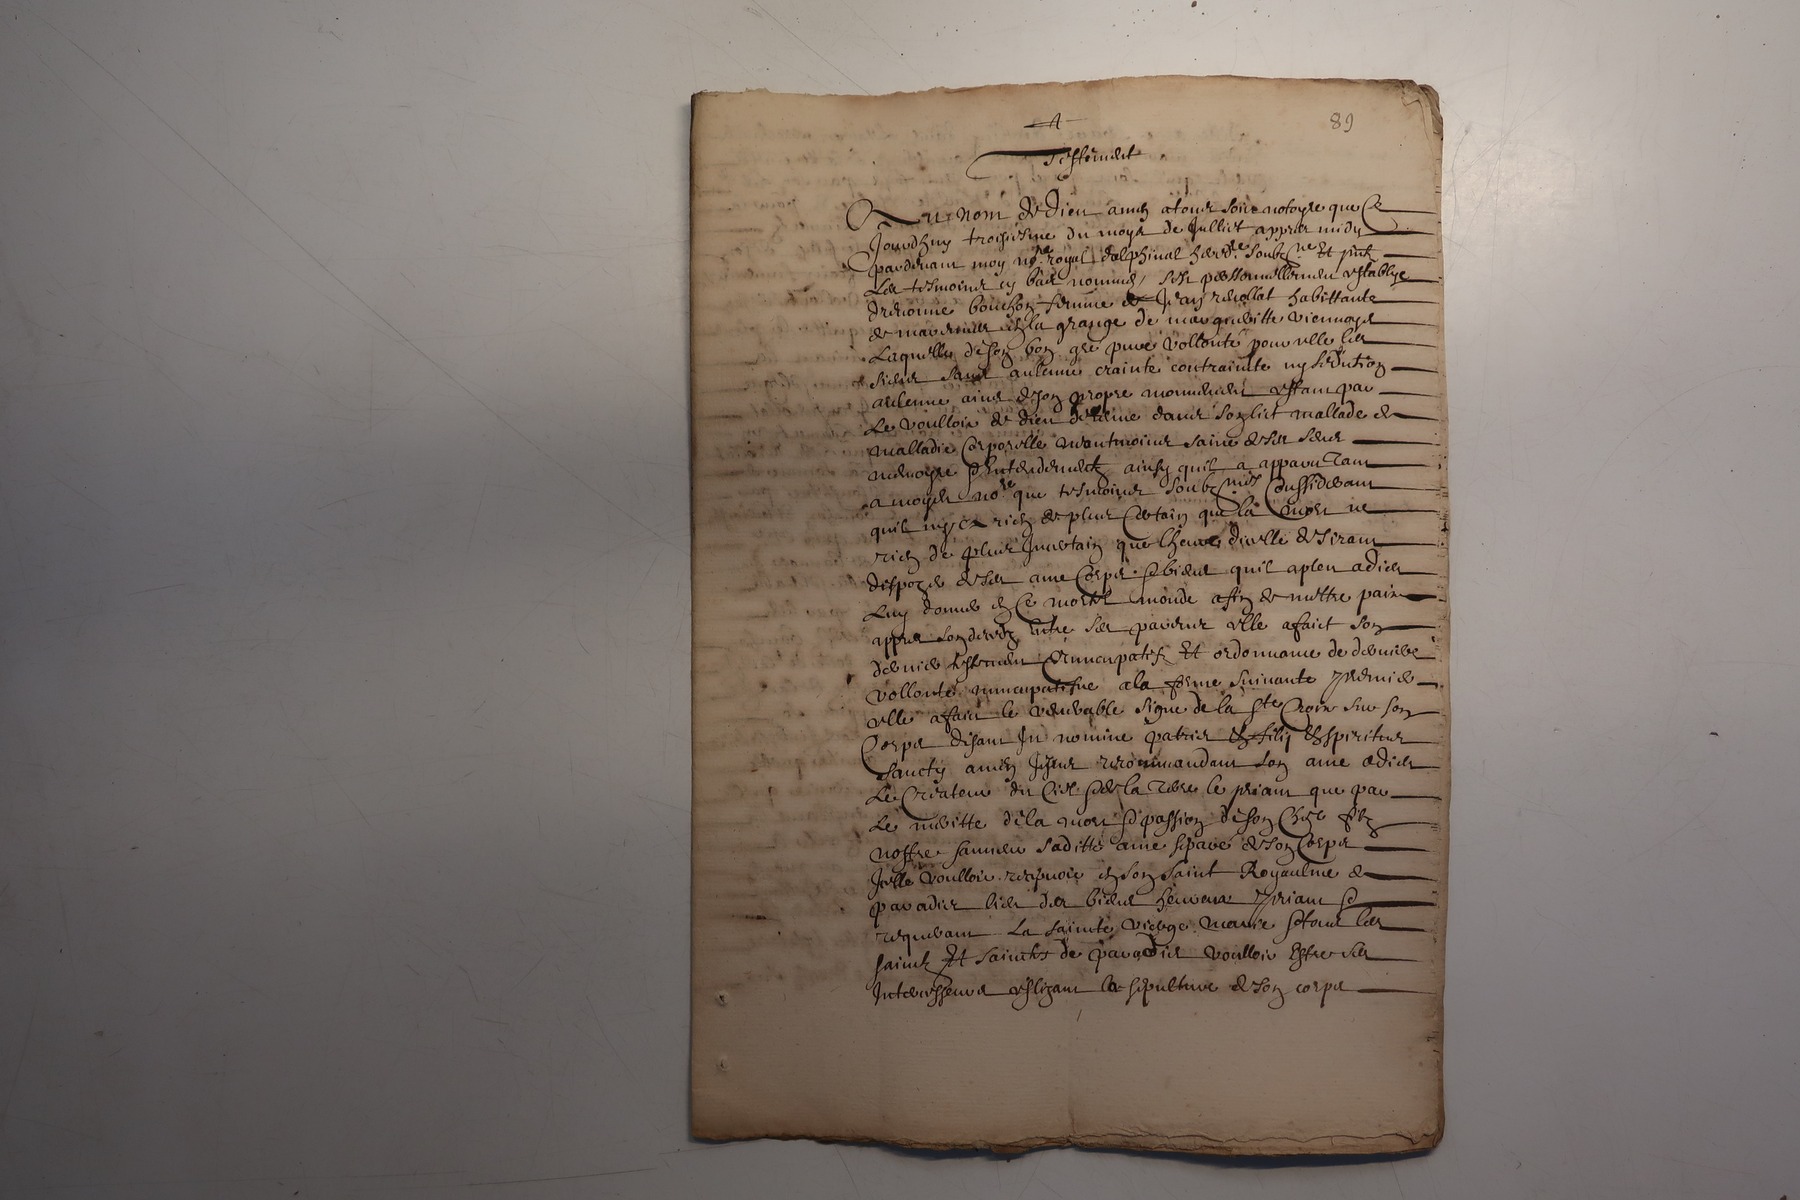 89
Testement
Au nom de Dieu amen a tous soit notoyre que Ce
Jourdhuy troisiesme du moys de Julliet appres midy
pardevant moy nore royal dalphinal hered.re soubz.ne Et pnt
Les tesmoings cy bas nommes sest personnellement establye
bouchon femme de Jean habittante
de en la grange de viennoys
Laquelle de son bon gre pure vollonte pour elle les
siens sans aulcune crainte contrainte ny seduction
aulcune ains de son propre mouvement estant par
Le voulloir de dieu detenue dans son lict mallade de
malladie Corporelle neantmoings saine de ses sens
memoyre & entendement ainsy quil a apparu tant
a moyd nore que tesmoings soubz.nes Conssiderant
quil nya rien de plus Certain que la mort ne
rien de plus Incertain que lheure dicelle desirant
dispozer de ses ame Corps & biens quil a pleu a dieu
Luy donner en Ce mortel monde affin de mettre paix
appres son deces entre ses parens elle a faict son
dernier testement nuncupatif Et ordonnance de derniere
vollonte nuncupatifve a la forme suivante premier
elle a faict le venerable signe de la ste Croix sur son
Corps disant In nomine patris et filij et spiritus
sancty amen recommandant son ame a dieu
Le Createur du Ciel & de la terre le priant que par
Le meritte de la mort & passion de son Cher filz
nostre sauveur sa ditte ame separe de son Corps
Icelle voulloir recepvoir en son saint Royaulme de
paradis lieu des biens heureux priant &
requerant La sainte vierge marie & tous les
saints Et saincts de paradis voulloir Estre ses
Intercesseurs eslizant la sepulture de son corps